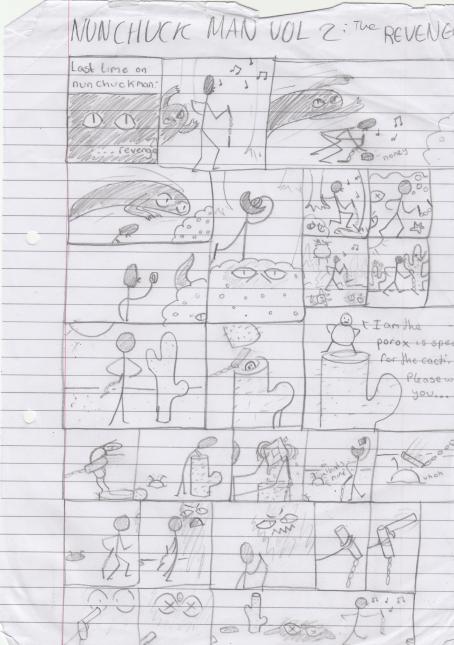 NUNCHUCK MAN VOL 2: The REVENGE
Last time on
nunchuckman:
....revenge
money
I am the
porox is spec
for the cacti
Please w
you...